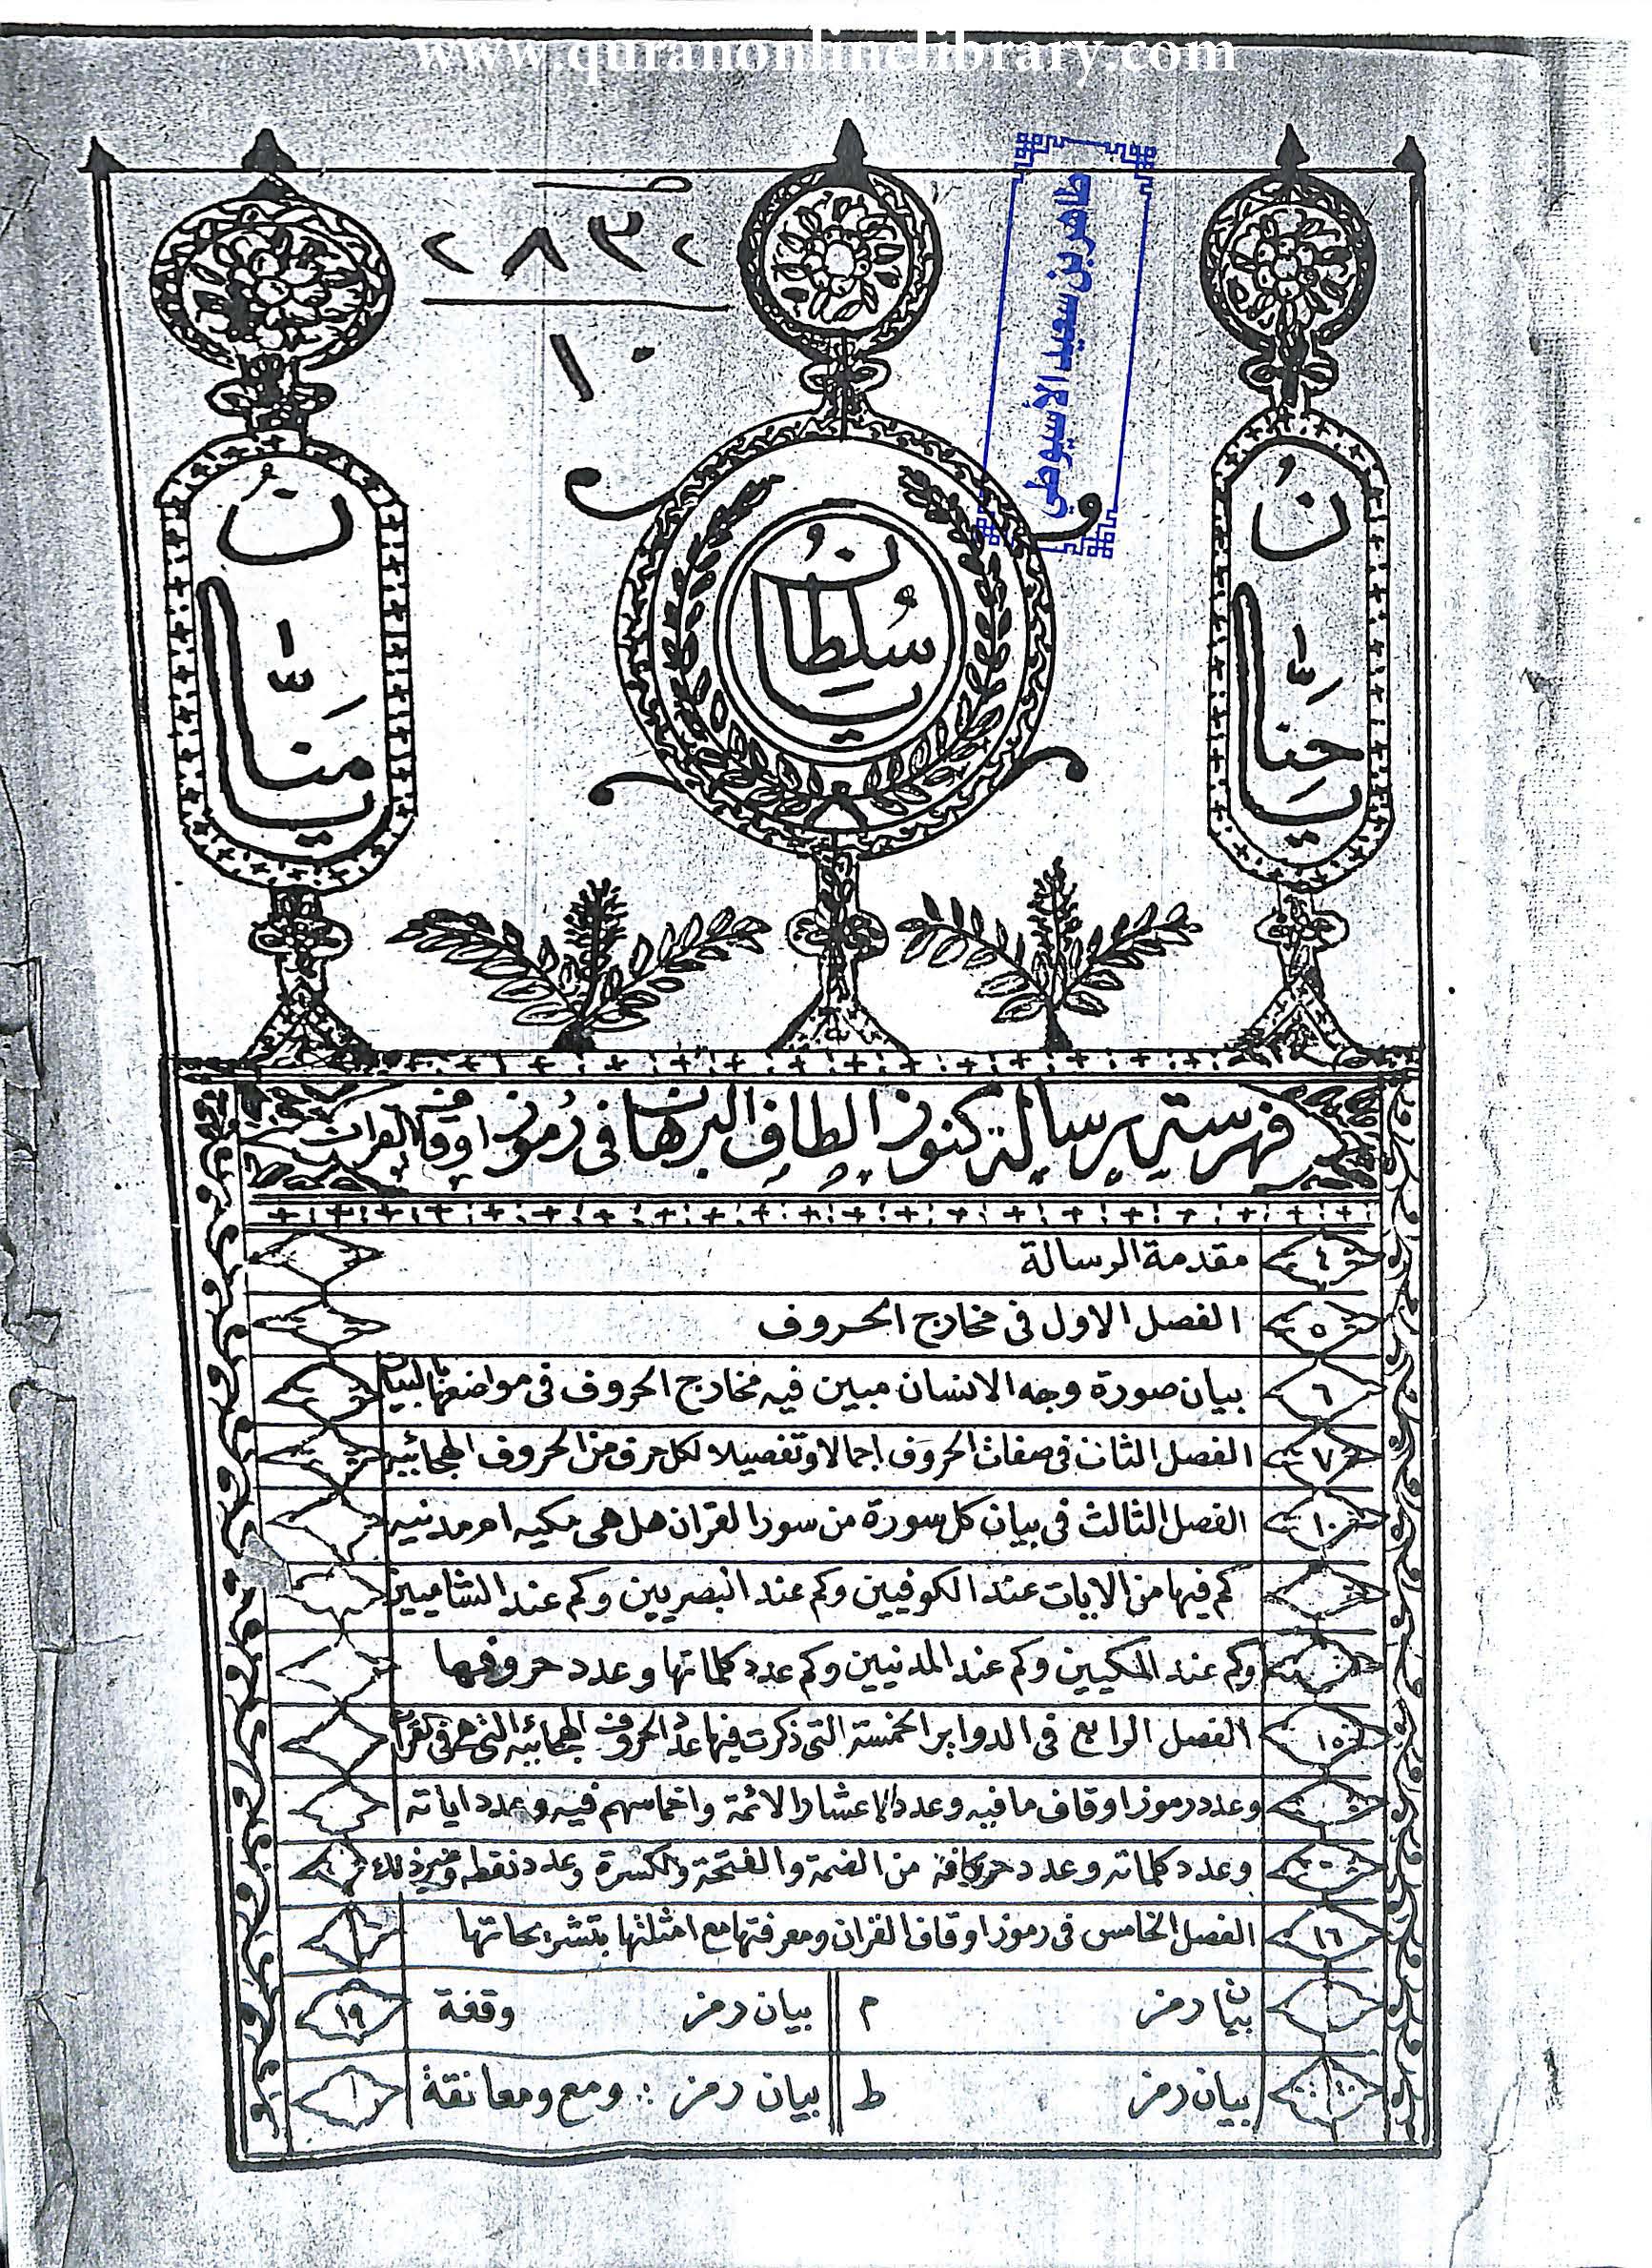 www.quranonlinelibrary.com
طاهر بن سعيد الأسيوطي
٢٨٣٢
١٠
يَا حِنَّانُ
يَا سُلْطَانُ
يَا مَنَّانُ
فهرسة رسالة كنوز الطاف البرهان فى رموز اوقاف القران
٤ مقدمة الرسالة
٥ الفصل الاول فى مخارج الحروف
٦ بيان صورة وجه الانسان مبين فيه مخارج الحروف فى مواضعها بالبيان
٧ الفصل الثانى فى صفات الحروف اجمالا وتفصيلا لكل حرف من الحروف الهجائيه
١٠ الفصل الثالث فى بيان كل سورة من سور القران هل هى مكيه ام مدنيه
كم فيها من الايات عند الكوفيين وكم عند البصريين وكم عند الشاميين
وكم عند المكيين وكم عند المدنيين وكم عدد كلماتها وعدد حروفها
١٥ الفصل الرابع فى الدواير الخمسة التى ذكرت فيها عدد الحروف الهجائيه التى هى فى القران
وعدد رموز اوقاف ما فيه وعدد الاعشار الائمة واخماسهم فيه وعدد اياته
وعدد كلماته وعدد حركاته من الضمة والفتحة والكسرة وعدد نقطه وغير ذلك
١٦ الفصل الخامس فى رموز اوقاف القران ومعرفتها مع امثلتها بتشريحاتها
بيان رمز م بيان رمز وقفة ١٩
بيان رمز ط بيان رمز ∴ ومع ومعانقة